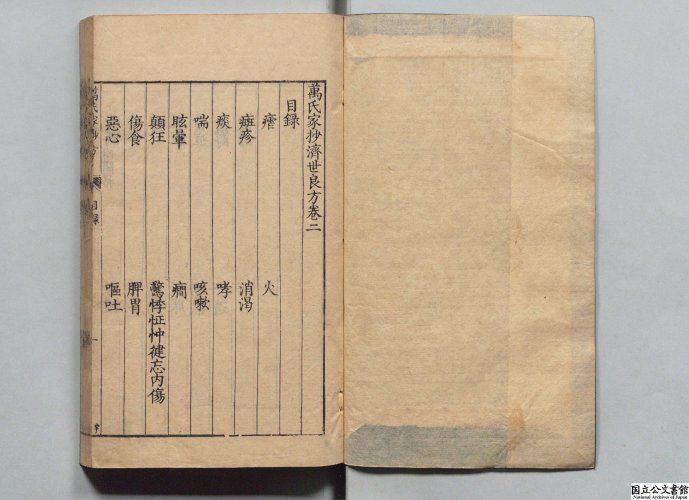 萬氏家抄濟世良方卷二
目錄
瘧 火
斑疹 消渴
痰 哮
喘 咳嗽
眩暈 癇
顛狂 驚悸怔忡健忘內傷
傷食 脾胃
惡心 嘔吐
萬氏家抄 目錄 一
国立公文書館
National Archives of Japan